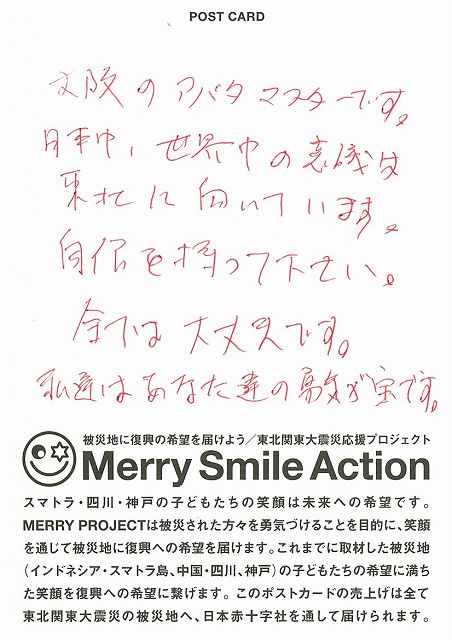 POST CARD
大阪のアバタマスターです。
日本中、世界中の意識は
東北に向いています。
自信を持って下さい。
全ては大丈夫です。
私達はあなた達の勇気が宝です。
被災地に復興の希望を届けよう／東北関東大震災応援プロジェクト
Merry Smile Action
スマトラ・四川・神戸の子どもたちの笑顔は未来への希望です。
MERRY PROJECTは被災された方々を勇気づけることを目的に、笑顔
を通じて被災地に復興への希望を届けます。これまでに取材した被災地
（インドネシア・スマトラ島、中国・四川、神戸）の子どもたちの希望に満ち
た笑顔を復興への希望に繋げます。このポストカードの売上げは全て
東北関東大震災の被災地へ、日本赤十字社を通して届けられます。